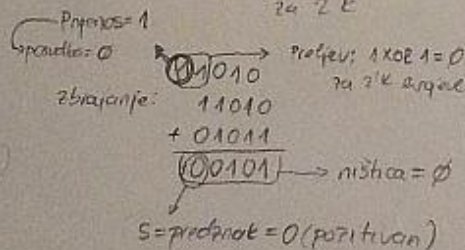 za 2'k
Prijenos = 1
posudba = 0
01010
Preljev: 1 XOR 1 = 0
za 2'k
zbrajanje:
11010
+ 01011
00101
ništica = 0
S = predznak = 0 (pozitivan)